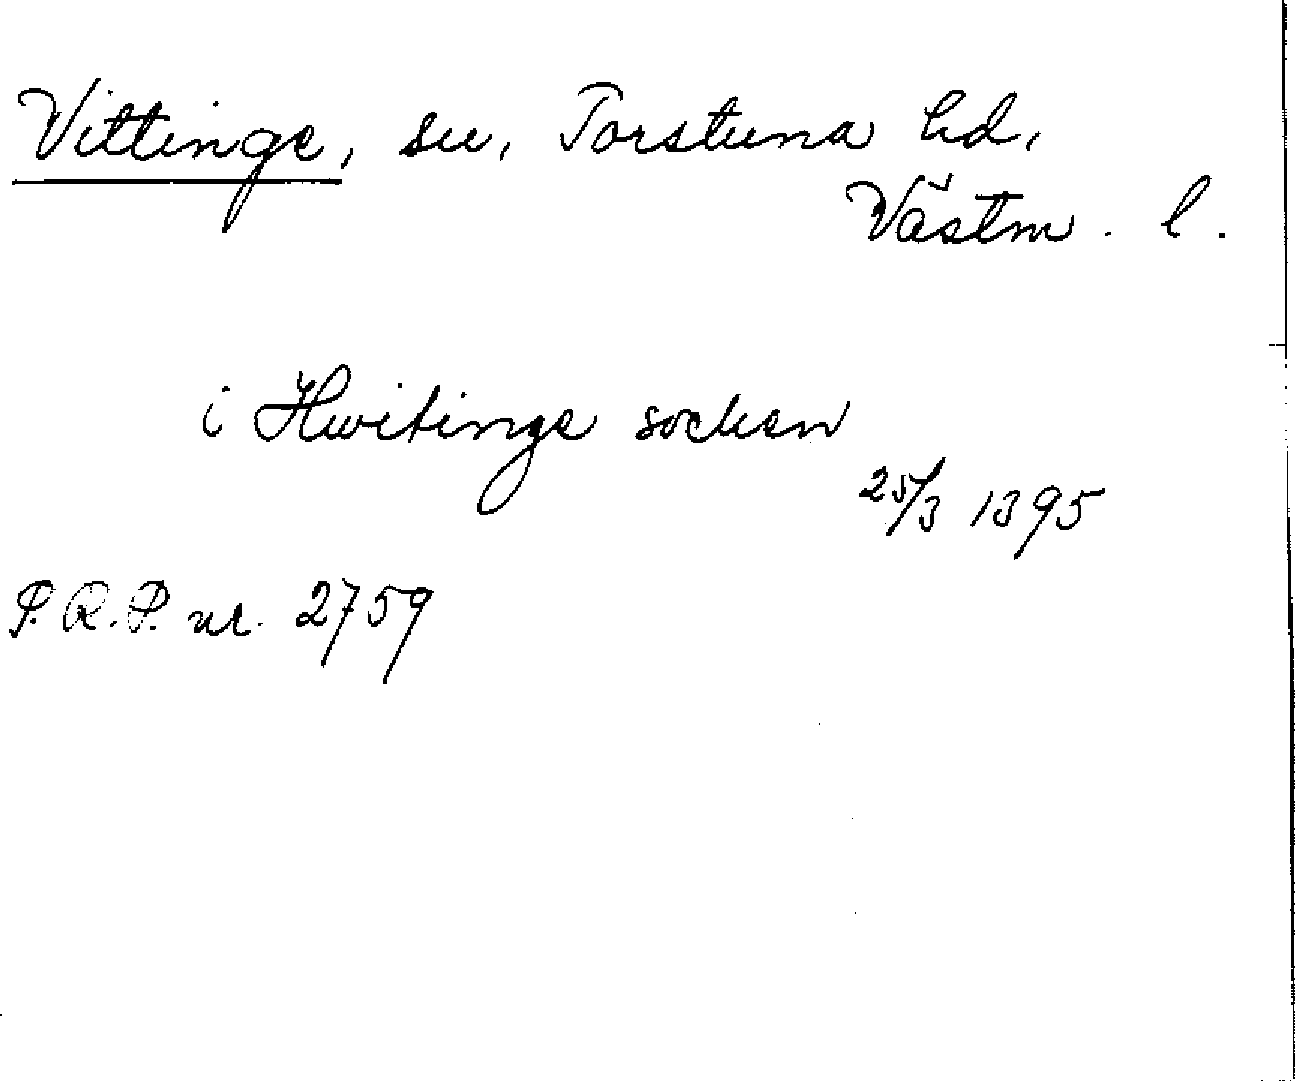 Vittinge, sn, Torstuna hd,
Västm. l.
i Hwitinge socken
25/3 1395
P.R.P. nr. 2759